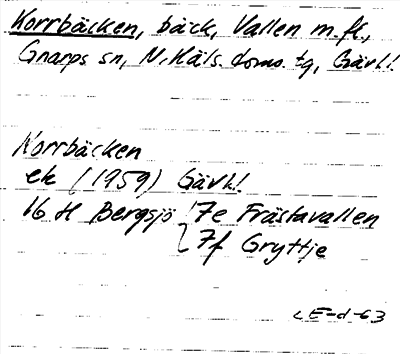 Norrbäcken, bäck, Vallen m fl,
Gnarps sn, N. Häls. doms. tg, Gävl.l.
Norrbäcken
ek (1959) Gävl.l.
16 H Bergsjö 7e Frästavallen
7f Gryttje
LE-d-63